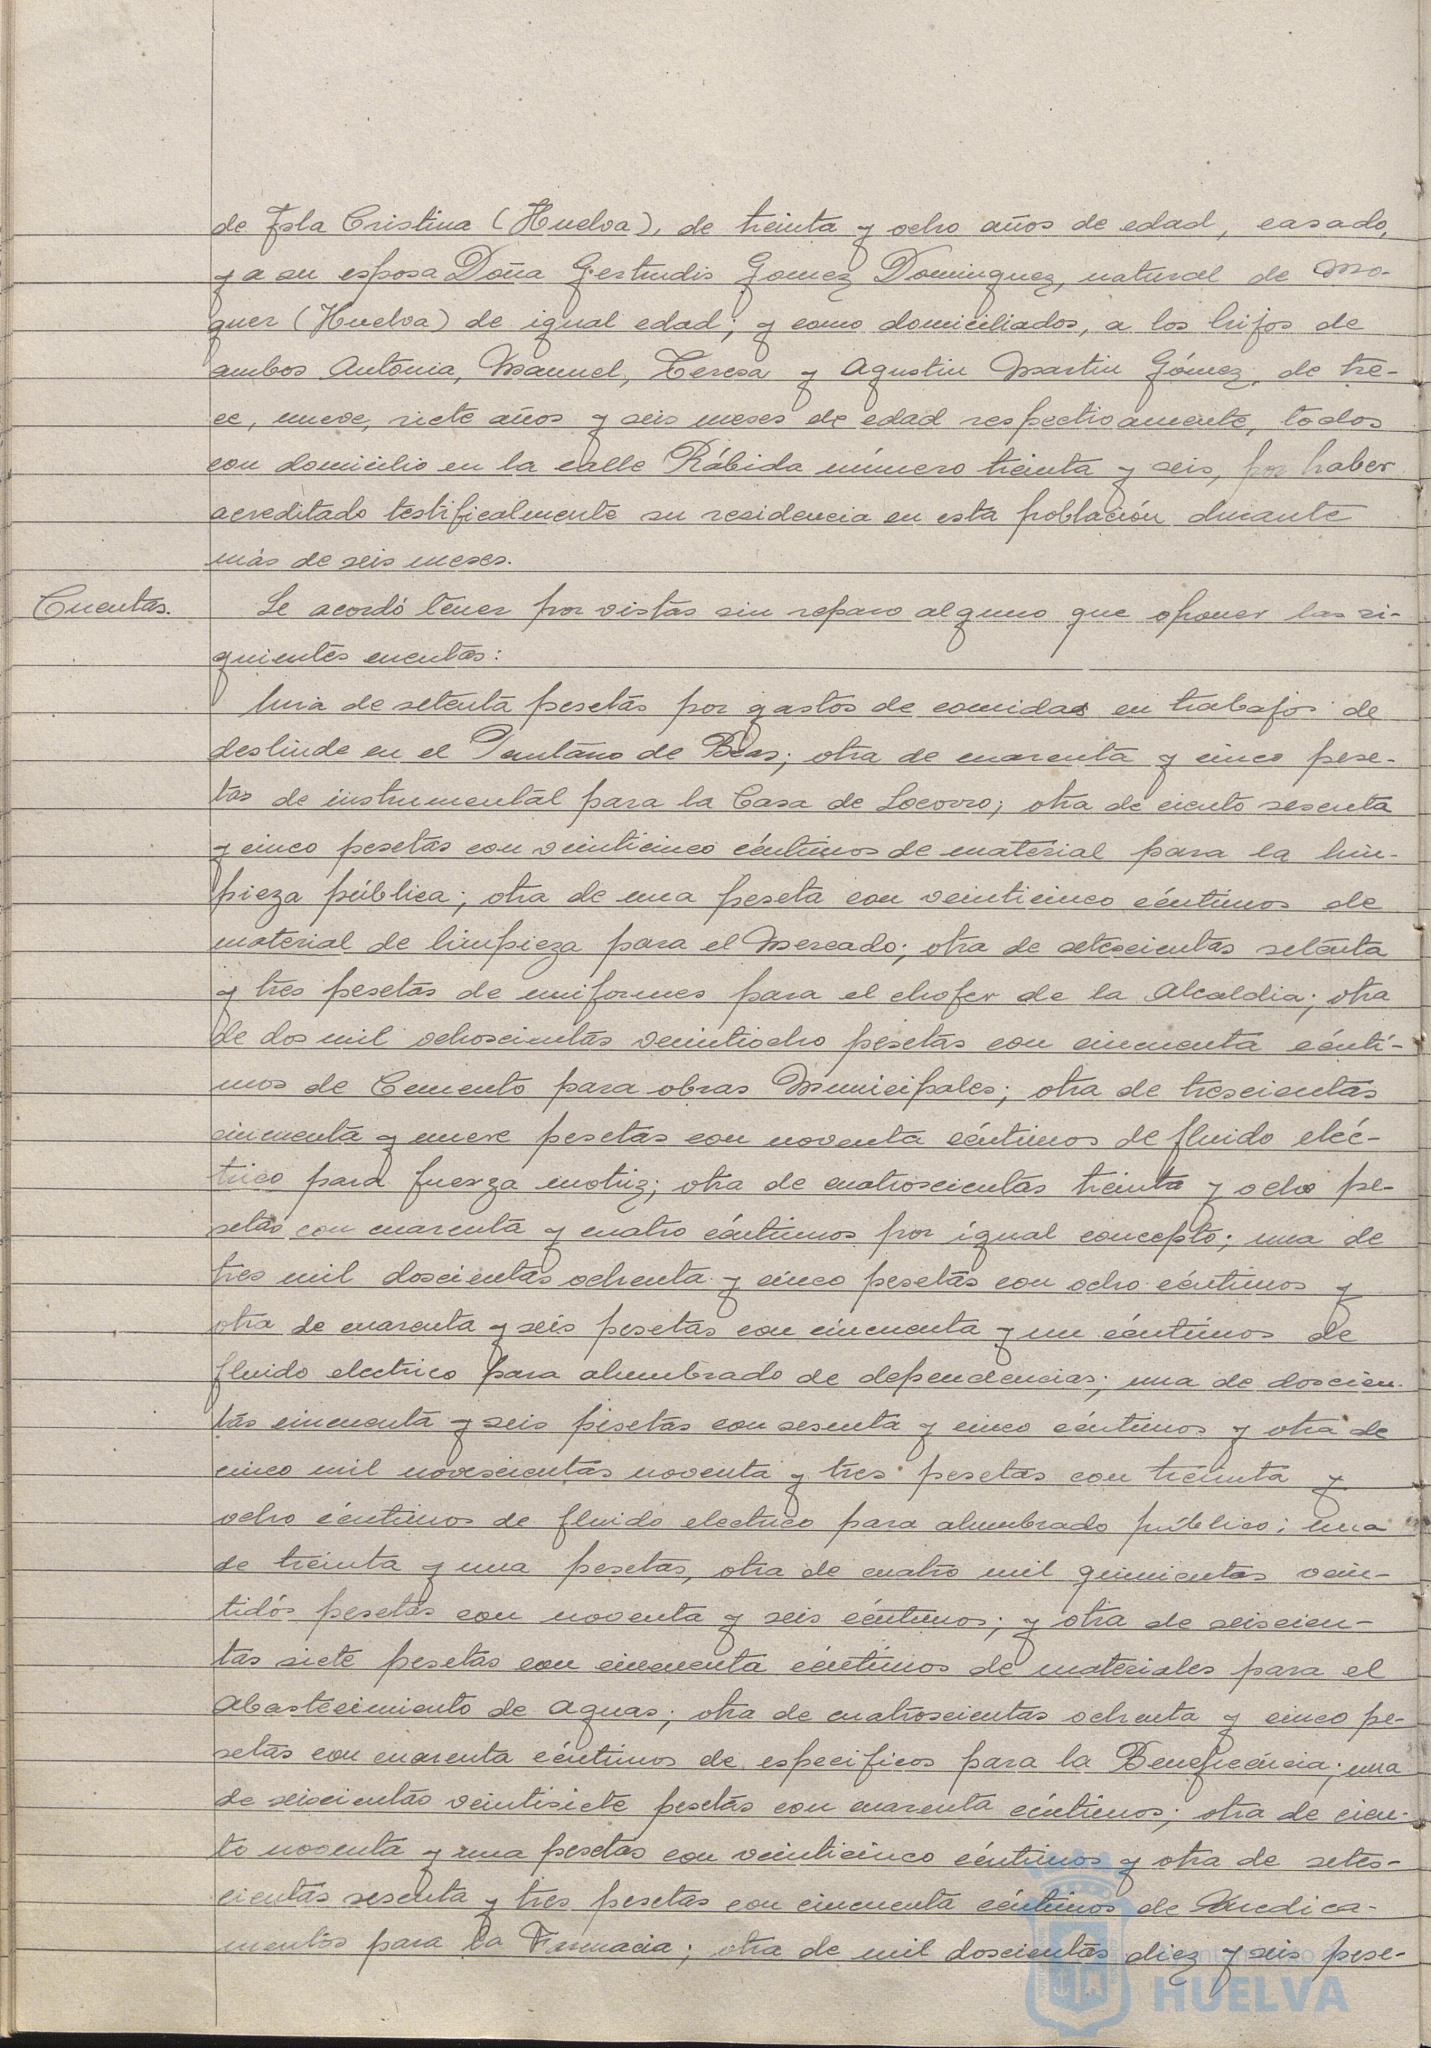 de Isla Cristina (Huelva), de treinta y ocho años de edad, casado,
y a su esposa Doña Gertrudis Gomez Dominguez, natural de Mo-
guer (Huelva) de igual edad; y como domiciliados, a los hijos de
ambos Antonia, Manuel, Teresa y Agustin Martin Gómez, de tre-
ce, nueve, siete años y seis meses de edad respectivamente, todos
con domicilio en la calle Rábida número treinta y seis, por haber
acreditado testificalmente su residencia en esta población durante
más de seis meses.
Cuentas.
Se acordó tener por vistas sin reparo alguno que oponer las si-
guientes cuentas:
Una de setenta pesetas por gastos de comidas en trabajos de
deslinde en el Pantano de Beas; otra de cuarenta y cinco pese-
tas de instrumental para la Casa de Socorro; otra de ciento sesenta
y cinco pesetas con veinticinco céntimos de material para la lim-
pieza pública; otra de una peseta con veinticinco céntimos de
material de limpieza para el Mercado; otra de setescientas setenta
y tres pesetas de uniformes para el chofer de la Alcaldia; otra
de dos mil ochoscientas veintiocho pesetas con cincuenta cénti-
mos de Cemento para obras Municipales; otra de trescientas
cincuenta y nueve pesetas con noventa céntimos de fluido eléc-
trico para fuerza motriz; otra de cuatroscientas treinta y ocho pe-
setas con cuarenta y cuatro céntimos por igual concepto; una de
tres mil doscientas ochenta y cinco pesetas con ocho céntimos y
otra de cuarenta y seis pesetas con cincuenta y un céntimos de
fluido electrico para alumbrado de dependencias; una de doscien-
tas cincuenta y seis pesetas con sesenta y cinco céntimos y otra de
cinco mil novescientas noventa y tres pesetas con treinta y
ocho céntimos de fluido electrico para alumbrado público; una
de treinta y una pesetas, otra de cuatro mil quinientas vein-
tidós pesetas con noventa y seis céntimos; y otra de seiscien-
tas siete pesetas con cincuenta céntimos de materiales para el
Abastecimiento de Aguas; otra de cuatroscientas ochenta y cinco pe-
setas con cuarenta céntimos de especificos para la Beneficencia; una
de seiscientas veintisiete pesetas con cuarenta céntimos; otra de cien-
to noventa y una pesetas con veinticinco céntimos y otra de setes-
cientas sesenta y tres pesetas con cincuenta céntimos de medica-
mentos para la Farmacia; otra de mil doscientas diez y seis pese-
HUELVA